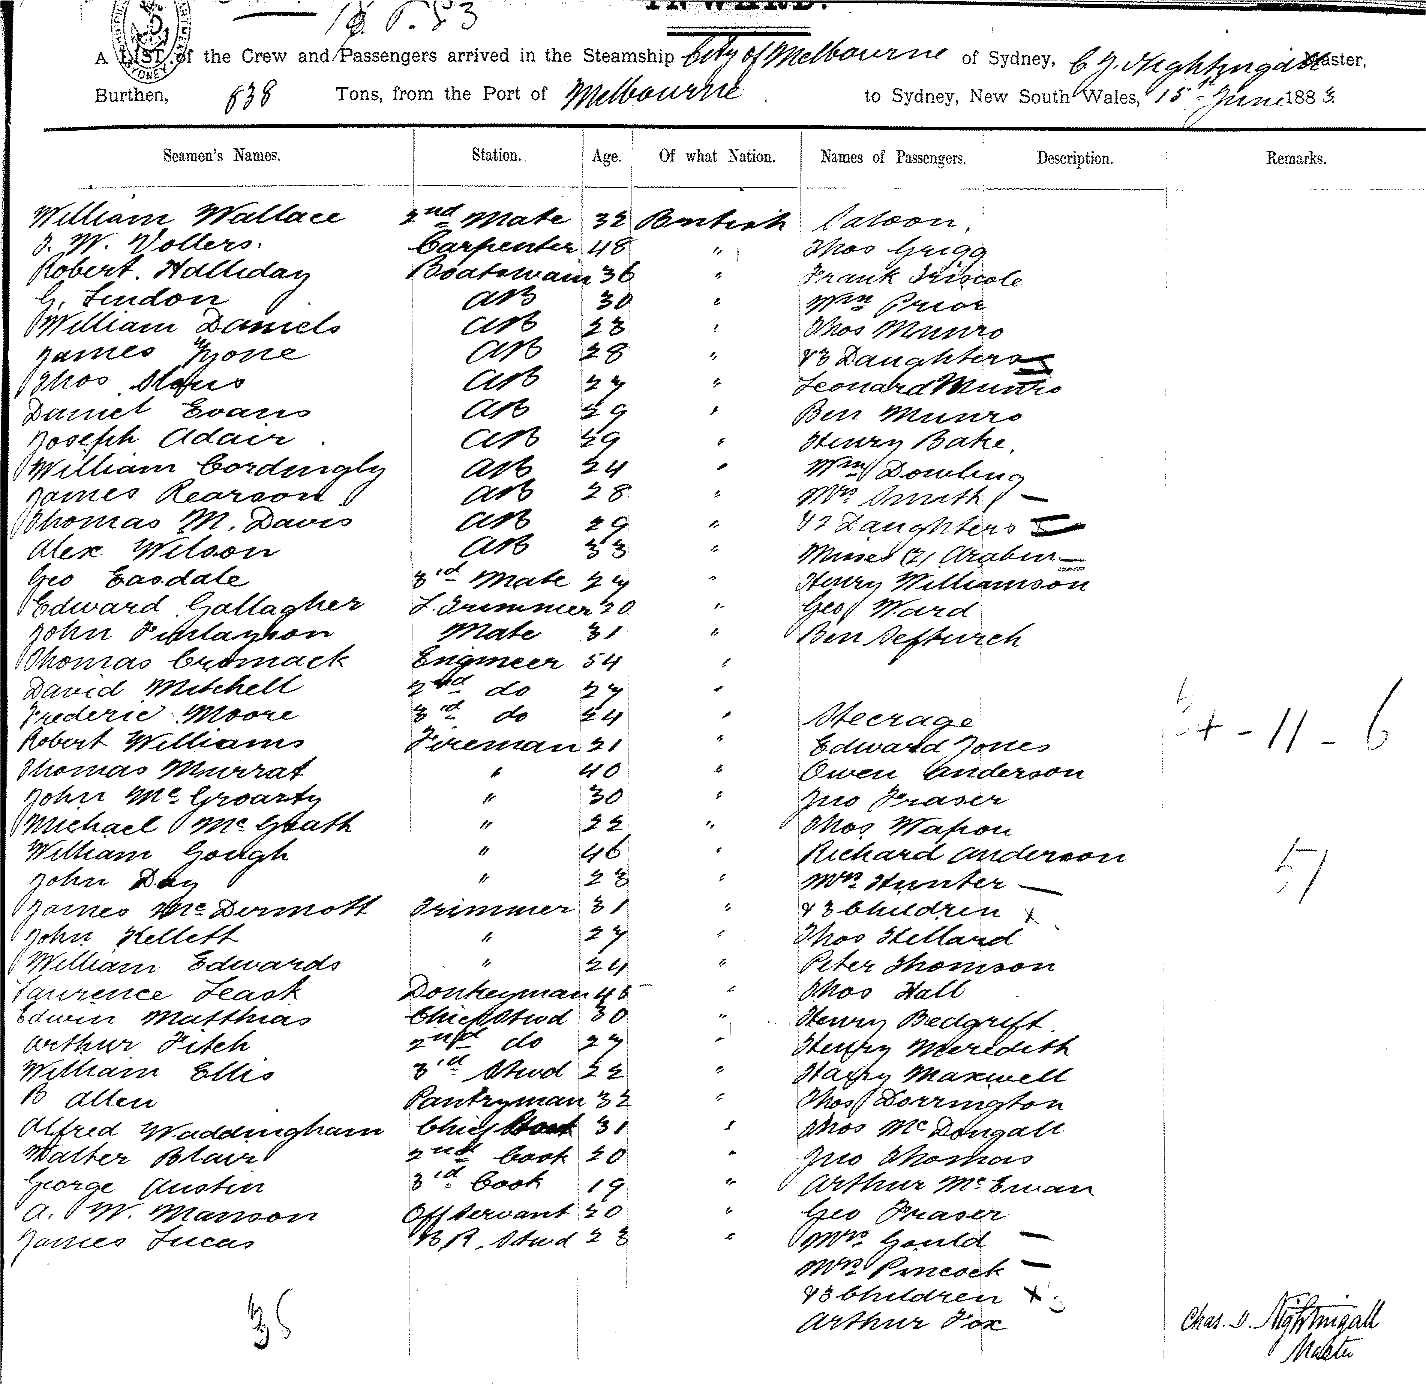 18.6.83
INWARD.
A LIST of the Crew and Passengers arrived in the Steamship City of Melbourne of Sydney, C. J. Nightingall Master,
Burthen, 838 Tons, from the Port of Melbourne to Sydney, New South Wales, 15th June 1883
Seamen's Names. Station. Age. Of what Nation. Names of Passengers. Description. Remarks.
William Wallace 2nd Mate 32 British Saloon.
J. W. Vollers. Carpenter 48 " Thos Grigg
Robert Halliday Boatswain 36 " Frank Driscole
G. Lindon AB 30 " Wm Prior
William Daniels AB 23 " Thos Munro
James AB 28 " & 3 Daughters
Thos AB 27 " Leonard Munro
Daniel Evans AB 29 " Ben Munro
Joseph Adair AB 29 " Henry Bake.
William Cordingly AB 24 " Wm Dowling
James Rearson AB 28 " Mrs Smith —
Thomas M. Davis AB 29 " & 2 Daughters x
Alex Wilson AB 33 " Misses (2) Arabin —
Geo Easdale 3rd Mate 27 " Henry Williamson
Edward Gallagher L. Trimmer 20 " Geo Ward
John Finlayson Mate 31 " Ben
Thomas Cromack Engineer 54 "
David Mitchell 2nd do 27 "
Frederic Moore 3rd do 24 " Steerage
Robert Williams Fireman 21 " Edward Jones
Thomas Murrat " 40 " Owen Anderson
John McGroarty " 30 " Jno Fraser
Michael McGrath " 22 " Thos Wapon
William Gough " 46 " Richard Anderson
John Day " 23 " Mrs Hunter —
James McDermott Trimmer 31 " & 3 Children x
John Hellett " 27 " Thos Hillard
William Edwards " 24 " Peter Thomson
Laurence Leask Donkeyman 45 " Thos Hall
Edwin Matthias Chief Stwd 30 " Henry Bedgrift.
Arthur Fitch 2nd do 27 " Henry Meredith
William Ellis 3rd Stwd 22 " Harry Maxwell
B Allen Pantryman 32 " Thos Dorrington
Alfred Waddingham Chief Cook 31 " Thos McDougall
Walter Blair 2nd Cook 20 " Jno Thomas
George Austin 3rd Cook 19 " Arthur McEwan
A. W. Manson Off Servant 20 " Geo Fraser
James Lucas B.R. Stwd 23 " Mrs Gould —
Mrs Pincock —
& 3 Children x
Arthur Fox
- 11 - 6
51
Chas. J. Nightingall
Master